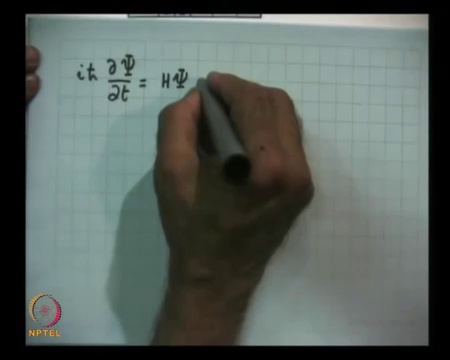 iħ ∂Ψ/∂t = HΨ
NPTEL